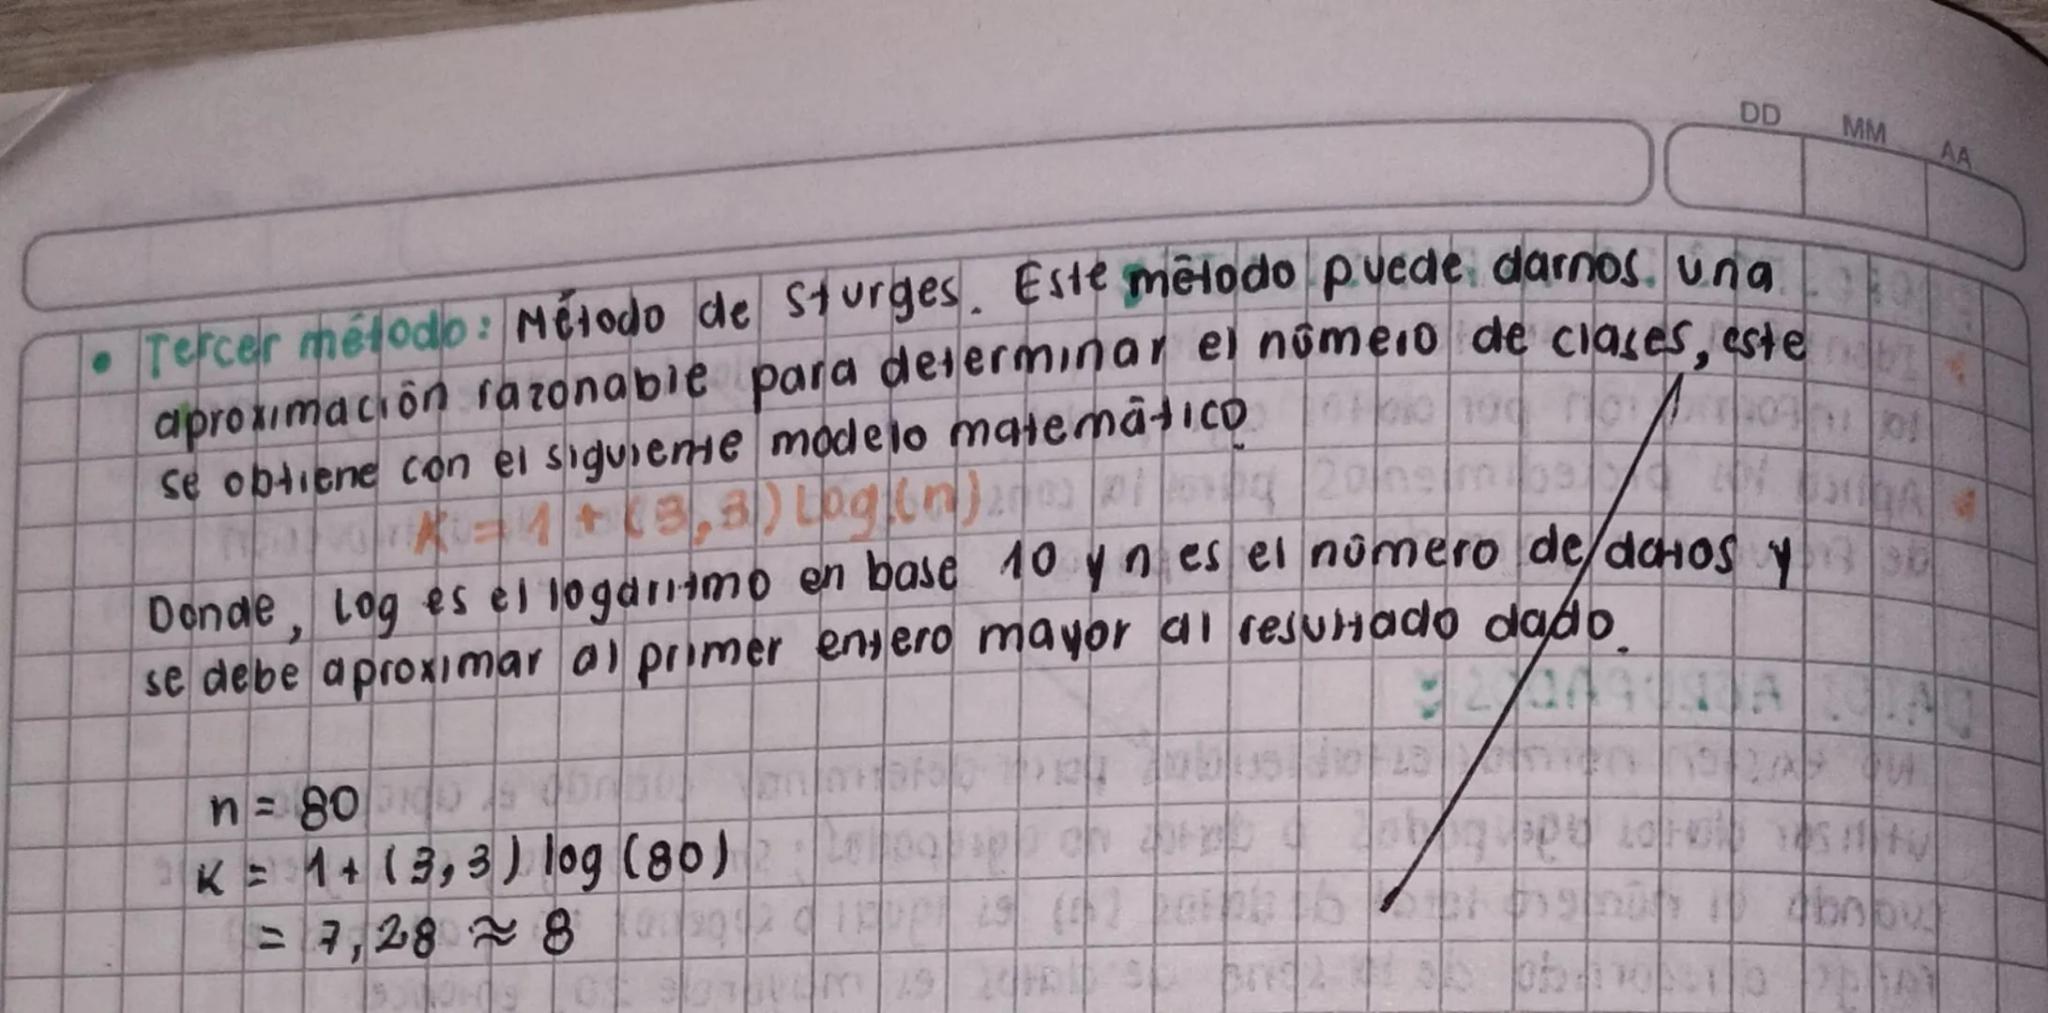 DD MM AA
• Tercer método: Método de Sturges. Este método puede darnos una
aproximación razonable para determinar el número de clases, este
se obtiene con el siguiente modelo matemático
K = 1 + (3,3) Log.(n)
Donde, Log es el logaritmo en base 10 y n es el número de datos y
se debe aproximar al primer entero mayor al resultado dado.
n = 80
K = 1 + (3,3) log (80)
= 7,28 ≈ 8